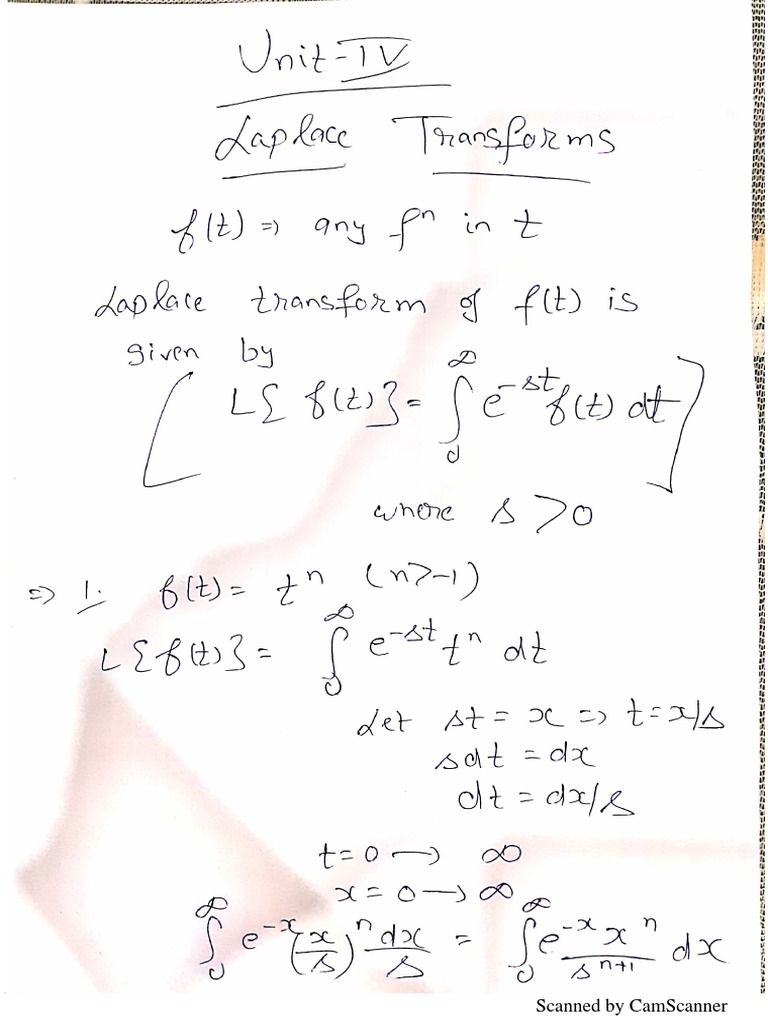 Unit-IV
Laplace Transforms
f(t) ⇒ any fⁿ in t
Laplace transform of f(t) is
given by
[ L{ f(t)} = ∫₀^∞ e^{-st} f(t) dt ]
where s > 0
⇒ 1. f(t) = tⁿ (n>-1)
L{f(t)} = ∫₀^∞ e^{-st} tⁿ dt
Let st = x ⇒ t = x/s
sdt = dx
dt = dx/s
t = 0 → ∞
x = 0 → ∞
∫₀^∞ e^{-x} (x/s)ⁿ dx/s = ∫₀^∞ e^{-x} xⁿ / s^{n+1} dx
Scanned by CamScanner